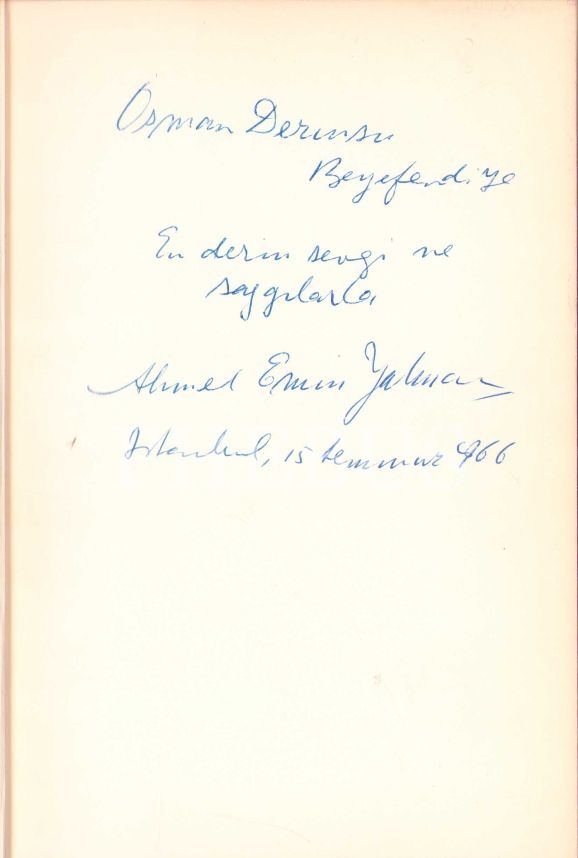 Osman Derinsu
Beyefendiye
En derin sevgi ve
saygılarla
Ahmed Emin Yalman
Istanbul, 15 temmuz 966